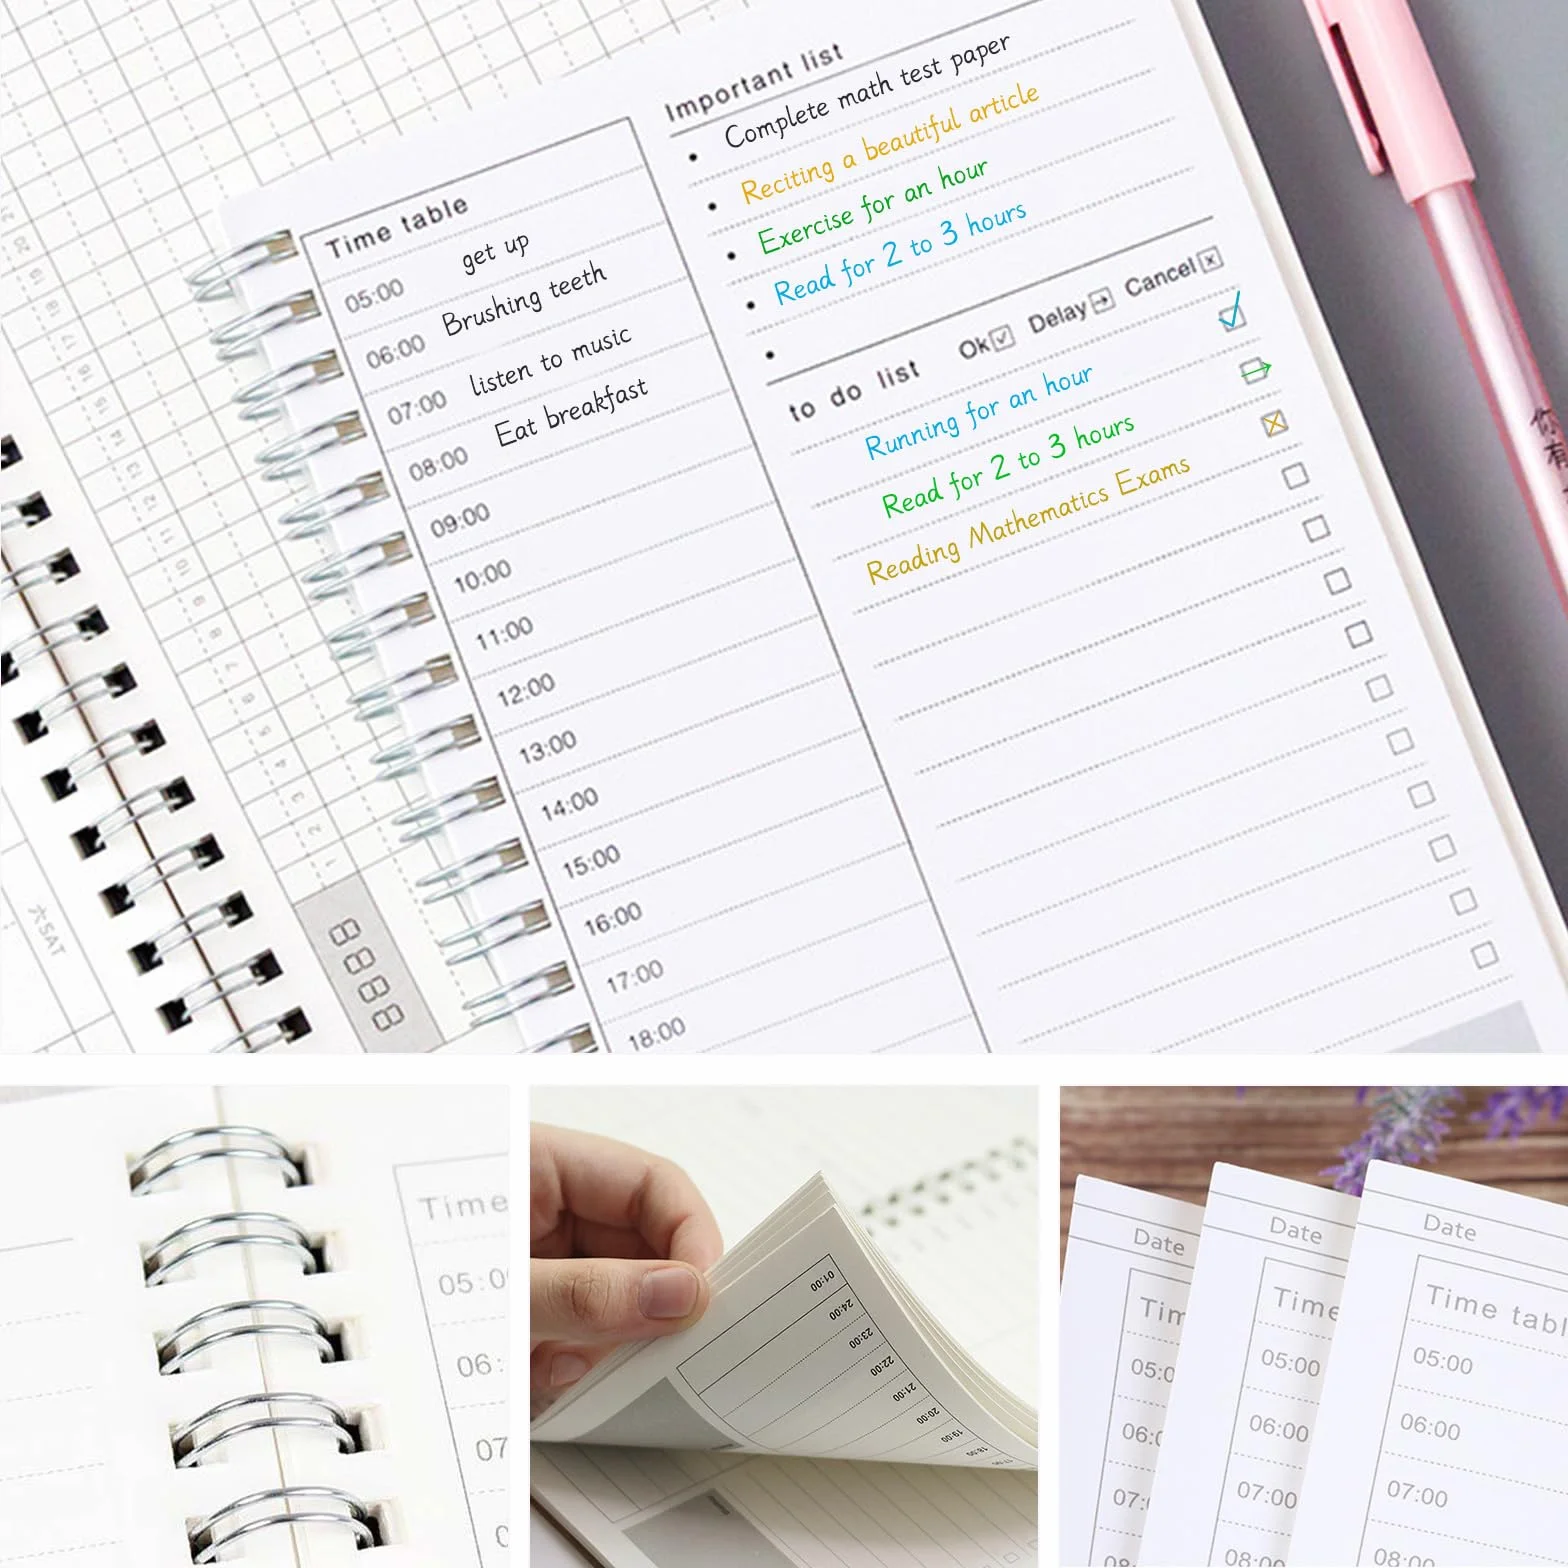 Time table
05:00 get up
06:00 Brushing teeth
07:00 listen to music
08:00 Eat breakfast
09:00
10:00
11:00
12:00
13:00
14:00
15:00
16:00
17:00
18:00
Important list
• Complete math test paper
• Reciting a beautiful article
• Exercise for an hour
• Read for 2 to 3 hours
•
to do list Ok ☑ Delay → Cancel ☒
Running for an hour
Read for 2 to 3 hours
Reading Mathematics Exams
六SAT
8888
你
有
Time
05:0
06:
07
0
01:00
24:00
23:00
22:00
21:00
20:00
19:00
18:00
17:00
Date
Tim
05:00
06:0
07:
08:
Date
Time
05:00
06:00
07:00
08:00
Date
Time tabl
05:00
06:00
07:00
08:00